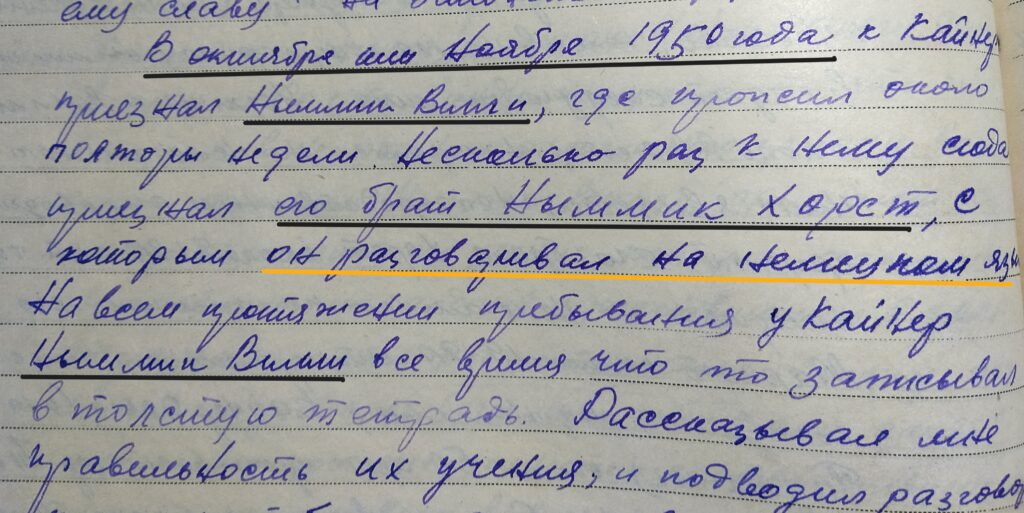 ему славу
В октябре или Ноябре 1950 года к Кайнер
приезжал Ныммик Вилли, где прожил около
полторы недели. Несколько раз к нему сюда
приезжал его брат Ныммик Хорст, с
которым он разговаривал на немецком язы
На всем протяжении пребывания у Кайнер
Ныммик Вилли все время что то записывал
в толстую тетрадь. Рассказывал мне
правильность их учения, и подводил разговор